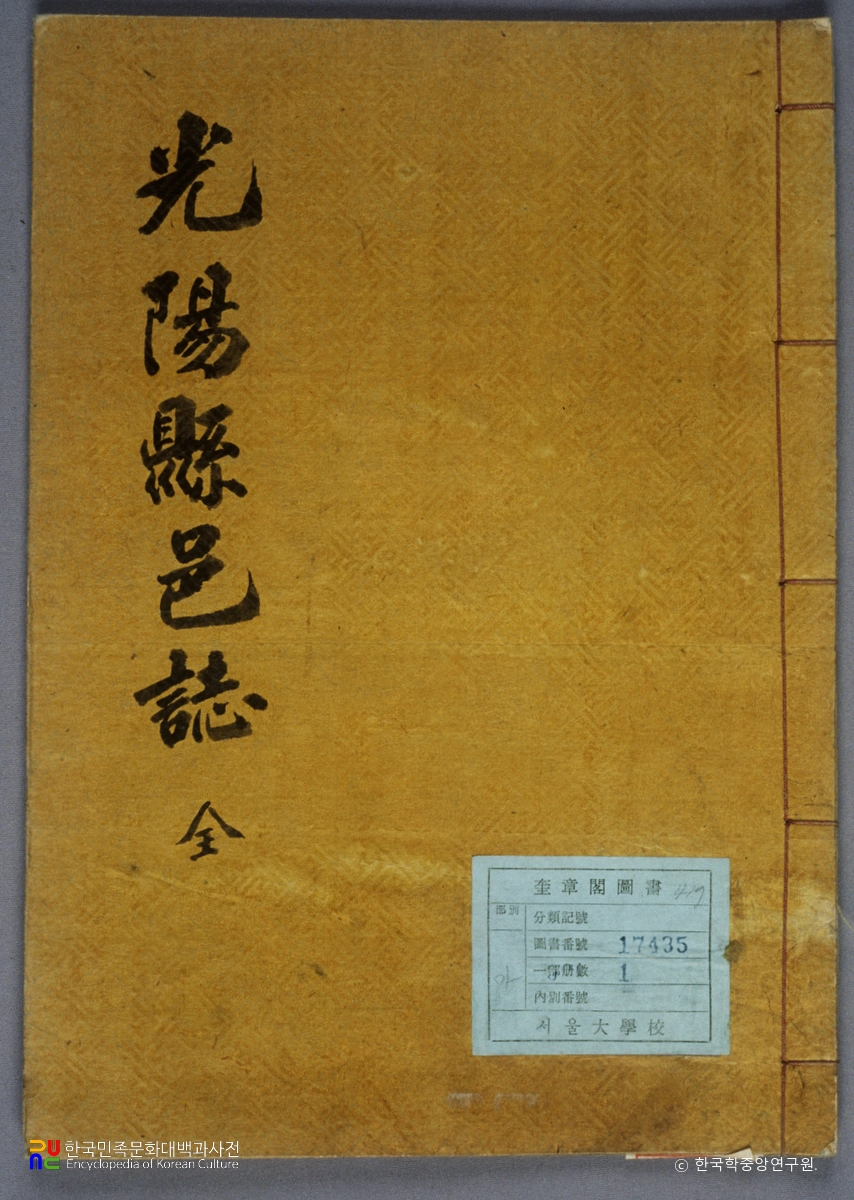 光陽縣邑誌 全
奎章閣圖書
部別
分類記號
圖書番號 17435
一部册數 1
內別番號
서울大學校
한국민족문화대백과사전
Encyclopedia of Korean Culture
© 한국학중앙연구원.